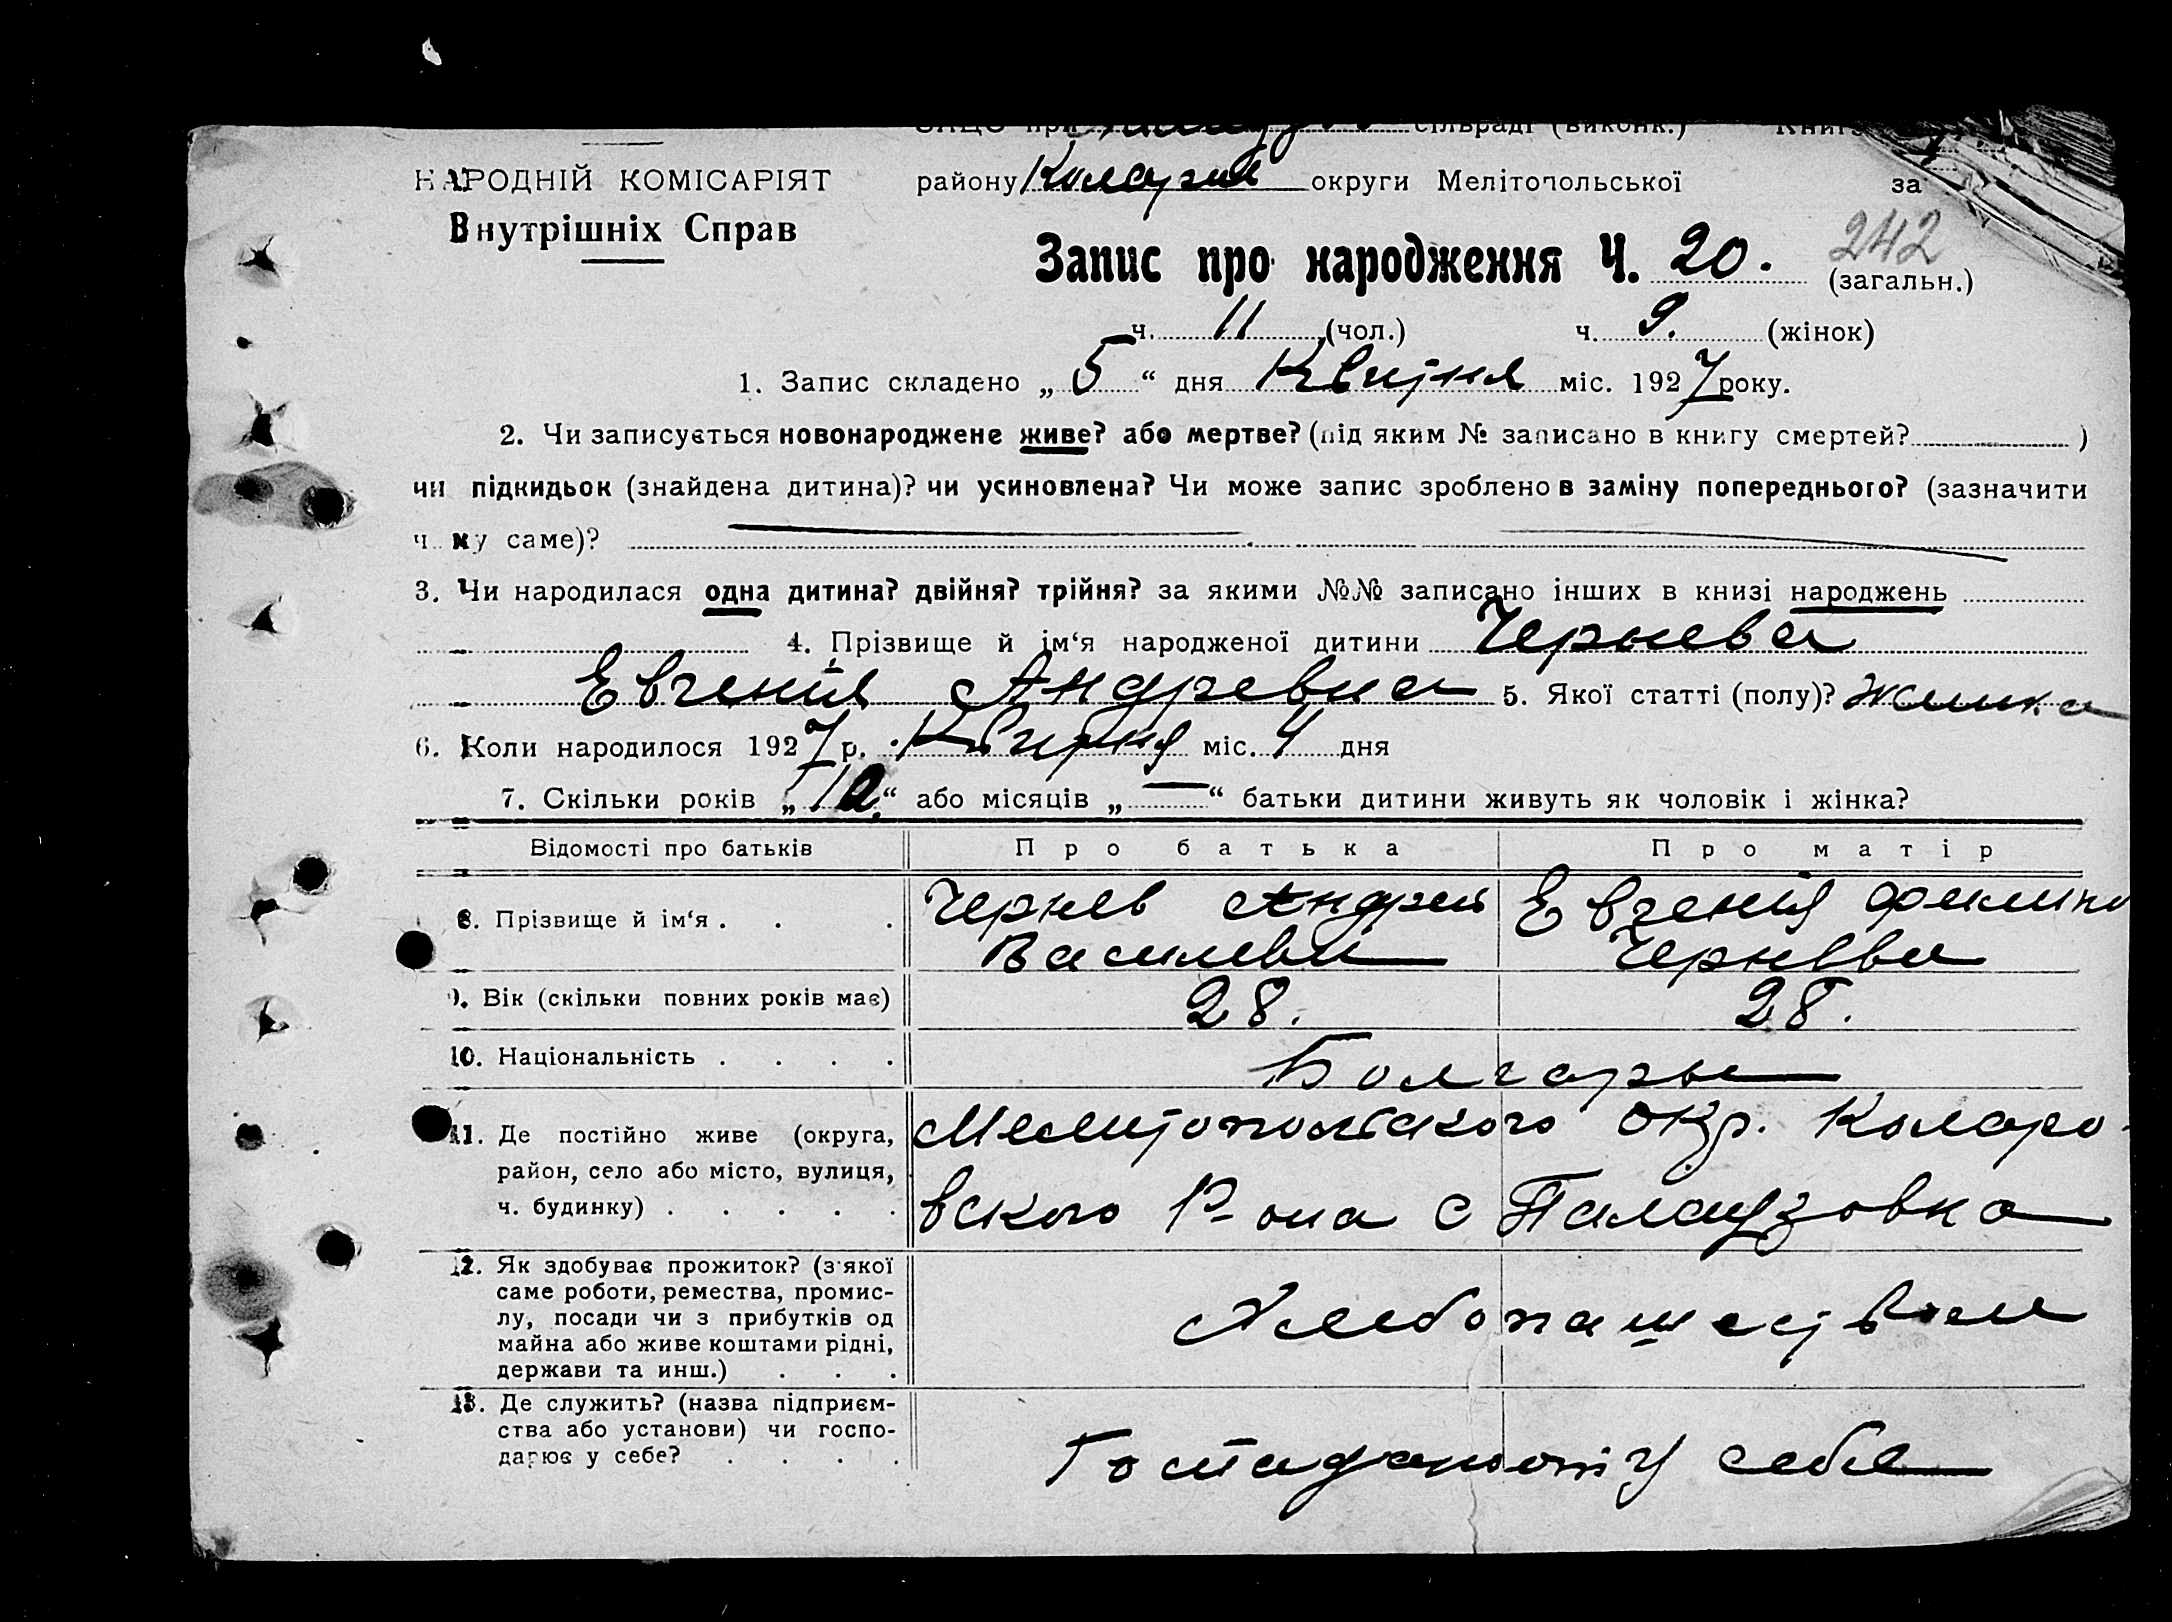 сільраді (виконк.)
НАРОДНІЙ КОМІСАРІЯТ
району округи Мелітопольської за
Внутрішніх Справ
242
Запис про народження Ч. 20. (загальн.)
ч. 11 (чол.) ч. 9. (жінок)
1. Запис складено „ 5 “ дня Квітня міс. 1927 року.
2. Чи записується новонароджене живе? або мертве? (під яким № записано в книгу смертей? )
чи підкидьок (знайдена дитина)? чи усиновлена? Чи може запис зроблено в заміну попереднього? (зазначити
ч му саме)?
3. Чи народилася одна дитина? двійня? трійня? за якими №№ записано інших в книзі народжень
4. Прізвище й ім‘я народженої дитини Чернева
Евгения Андревна 5. Якої статті (полу)? жинка
6. Коли народилося 1927 р. міс. 4 дня
7. Скільки років „ “ або місяців „ — “ батьки дитини живуть як чоловік і жінка?
Відомості про батьків Про батька Про матір
8. Прізвище й ім‘я . . . Чернев Андрей Евгения
Чернева
9. Вік (скільки повних років має) 28. 28.
10. Національність . . . . Болгары
11. Де постійно живе (округа, Мелитопольского окр. Коларо-
район, село або місто, вулиця,
ч. будинку) . . . . . вского Р-она с Палаузовка
12. Як здобуває прожиток? (з якої
саме роботи, ремества, промис-
лу, посади чи з прибутків од Хлебопашеством
майна або живе коштами рідні,
держави та инш.) . . .
13. Де служить? (назва підприєм-
ства або установи) чи госпо-
дарює у себе? . . . . у себе